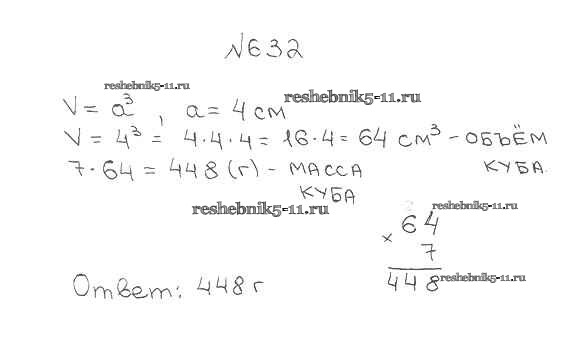 №632
reshebnik5-11.ru
V = a³, a = 4 см
reshebnik5-11.ru
V = 4³ = 4·4·4 = 16·4 = 64 см³ - ОБЪЁМ КУБА.
7·64 = 448 (г) - МАССА КУБА
reshebnik5-11.ru
reshebnik5-11.ru
64
× 7
448
reshebnik5-11.ru
Ответ: 448 г